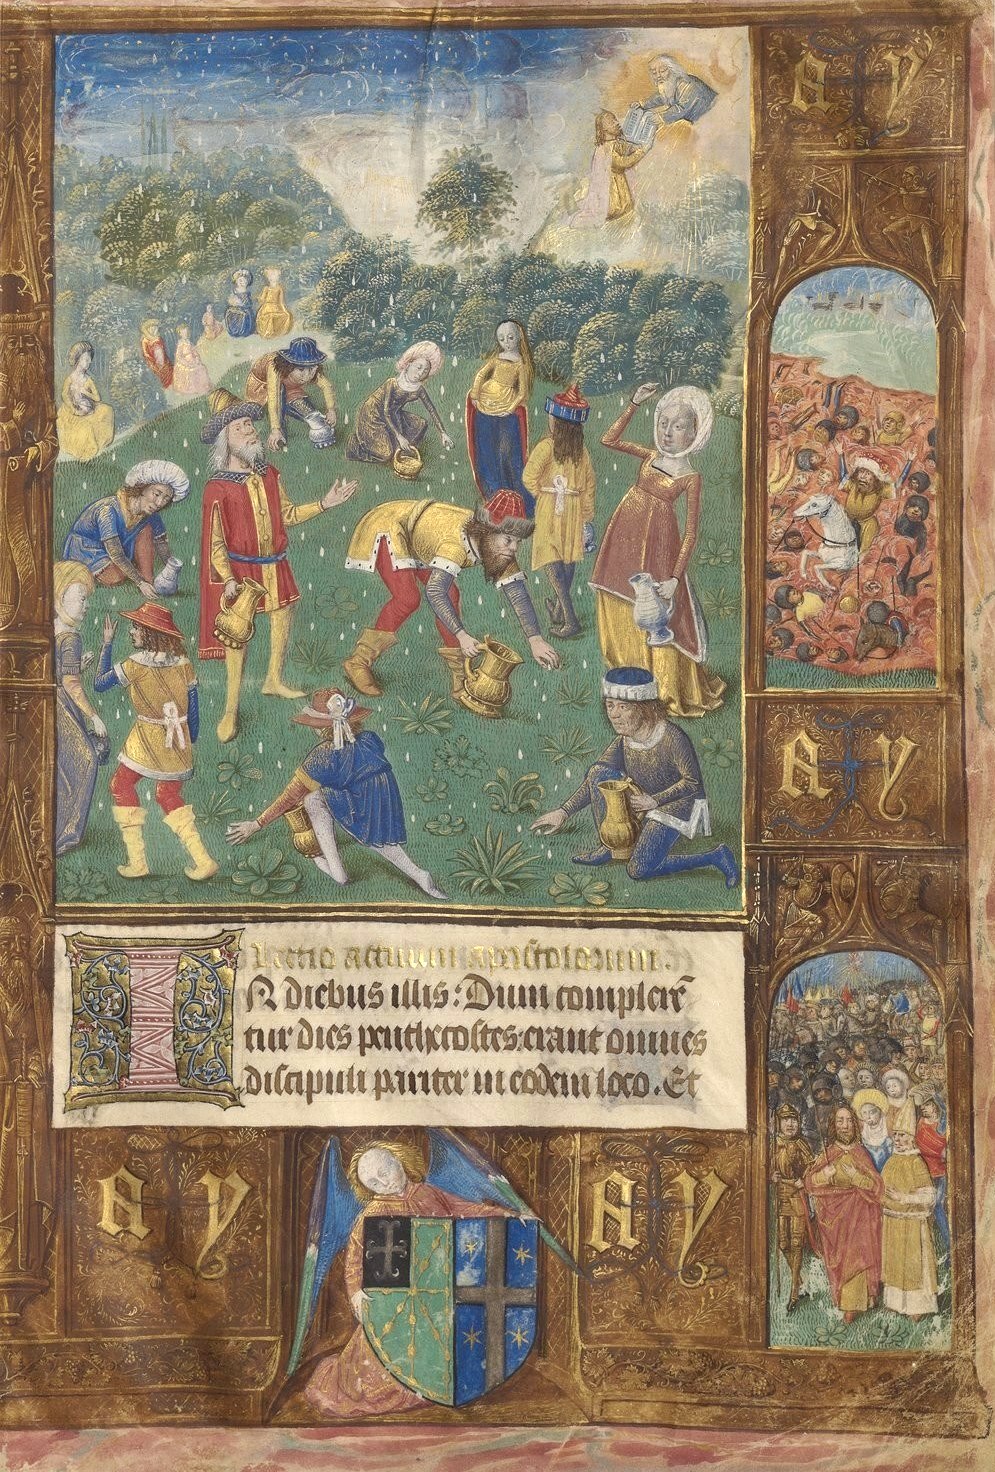 A Y
Lectio actuum apostolorum.
IN diebus illis: Dum complerē
A Y
tur dies penthecostes: erant omnes
discipuli pariter in eodem loco. Et
A Y
A Y